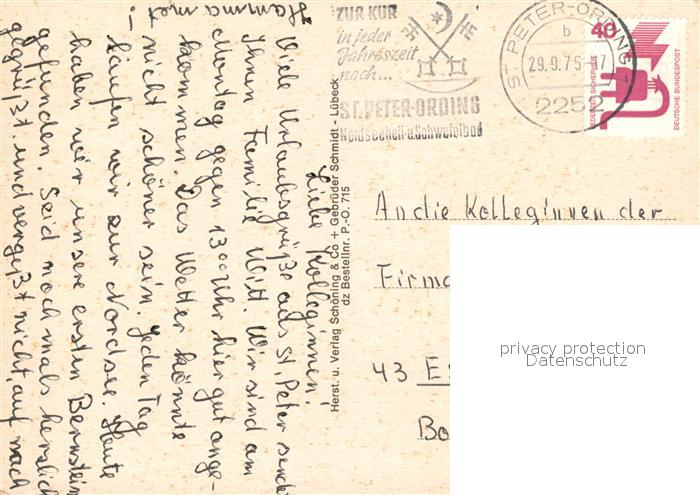 ZUR KUR
in jeder
Jahreszeit
nach...
ST. PETER-ORDING
Nordseeheil- u. Schwefelbad
ST. PETER-ORDING 1
b
29.9.75-17
2252
40
JEDERZEIT SICHERHEIT
DEUTSCHE BUNDESPOST
Liebe Kolleginnen!
Viele Urlaubsgrüße aus St. Peter sendet
Ihnen Familie Witt. Wir sind am
Montag gegen 13°° Uhr hier gut ange-
kommen. Das Wetter könnte
nicht schöner sein. Jeden Tag
laufen wir zur Nordsee. Heute
haben wir unsere ersten Bernstein
gefunden. Seid nochmals herzlich
gegrüßt und vergeßt nicht, auf nach
Hamma met!
Herst. u. Verlag Schöning & Co + Gebrüder Schmidt - Lübeck
dz Bestellnr. P.-O. 715
An die Kolleginnen der
Firma
43 E
Bo
privacy protection
Datenschutz